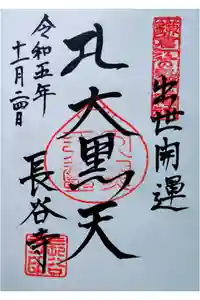 出世開運
大黒天
長谷寺
令和五年
十一月二四日